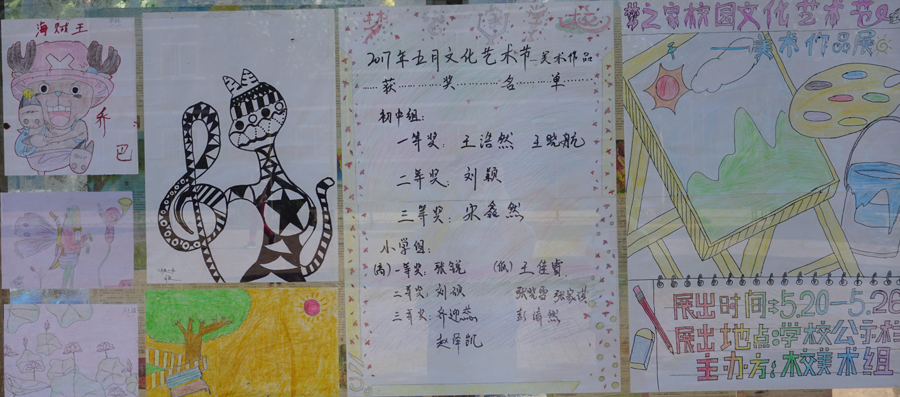 海贼王
乔
巴
2017年五月文化艺术节—美术作品
获奖名单
初中组:
一等奖: 王浩然 王晓航
二等奖: 刘颖
三等奖: 宋鑫然
小学组:
(高)一等奖: 张锐 (低) 王佳睿
二等奖: 刘硕
三等奖: 乔迎蕊
梦之家校园文化艺术节
——美术作品展
展出时间:5.20—5.26
展出地点:学校公示栏
主办方:校美术组